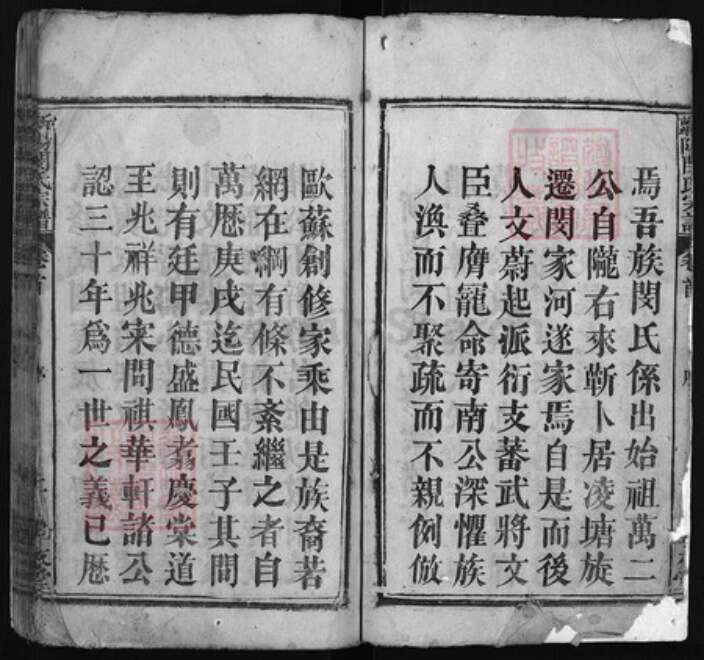 焉吾族閔氏係出始祖萬二
公自隴右來蘄卜居凌塘旋
遷閔家河遂家焉自是而後
人文蔚起派衍支蕃武將文
臣疊膺寵命寄南公深懼族
人渙而不聚疏而不親例倣
歐蘇創修家乘由是族裔若
網在綱有條不紊繼之者自
萬歷庚戌迄民國壬子其間
則有廷甲德盛鳳翥慶棠道
至兆祥兆寀問祺華軒諸公
認三十年爲一世之義已歷
閔氏宗譜 卷首